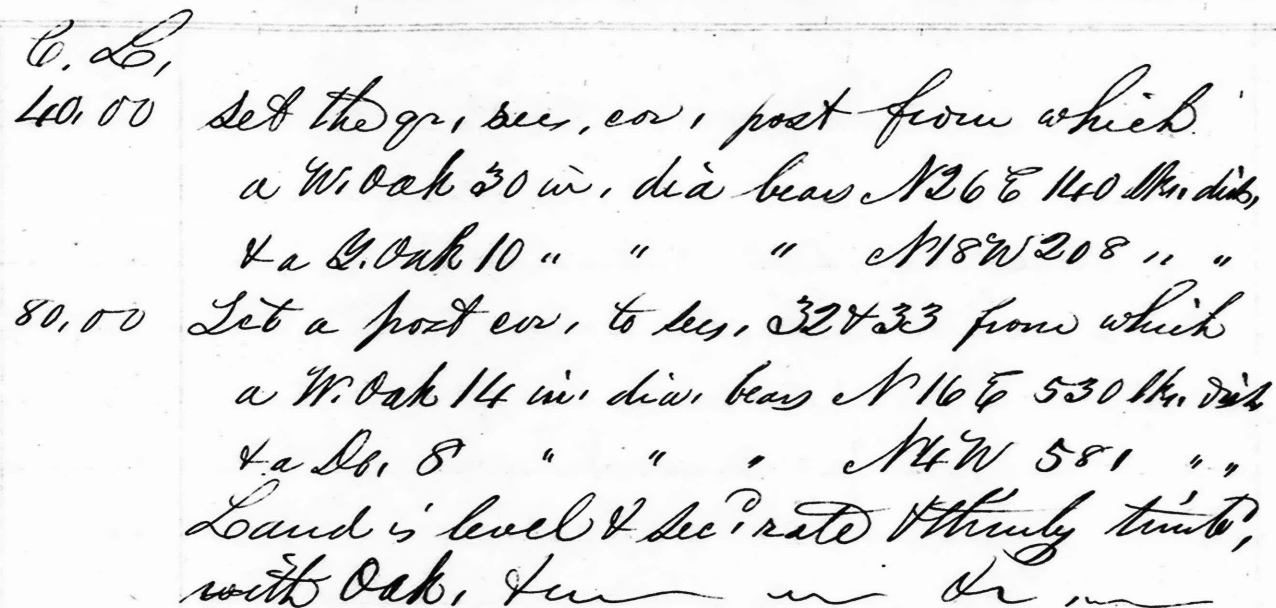 C. L.
40.00 Set the qr. sec. cor. post from which
a W. Oak 30 in. dia bears N26 E 140 lks. dist.
& a Y. Oak 10 " " " N18W 208 " "
80.00 Set a post cor. to secs. 32 & 33 from which
a W. Oak 14 in. dia. bears N 16 E 530 lks. dist
& a Do. 8 " " " N4W 581 " "
Land is level & sec'd rate & thinly timb'd,
with Oak.